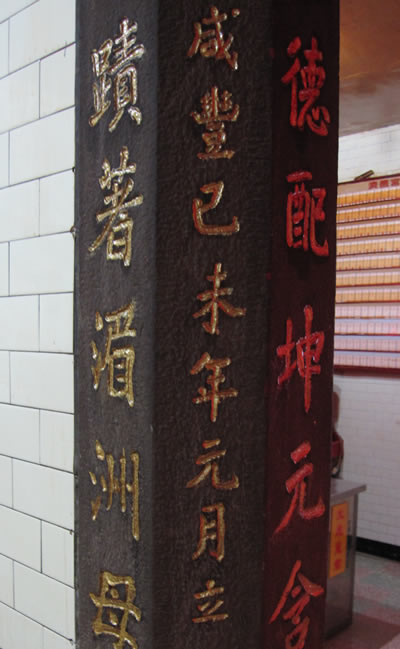 德配坤元含
咸豐己未年元月立
蹟著湄洲母